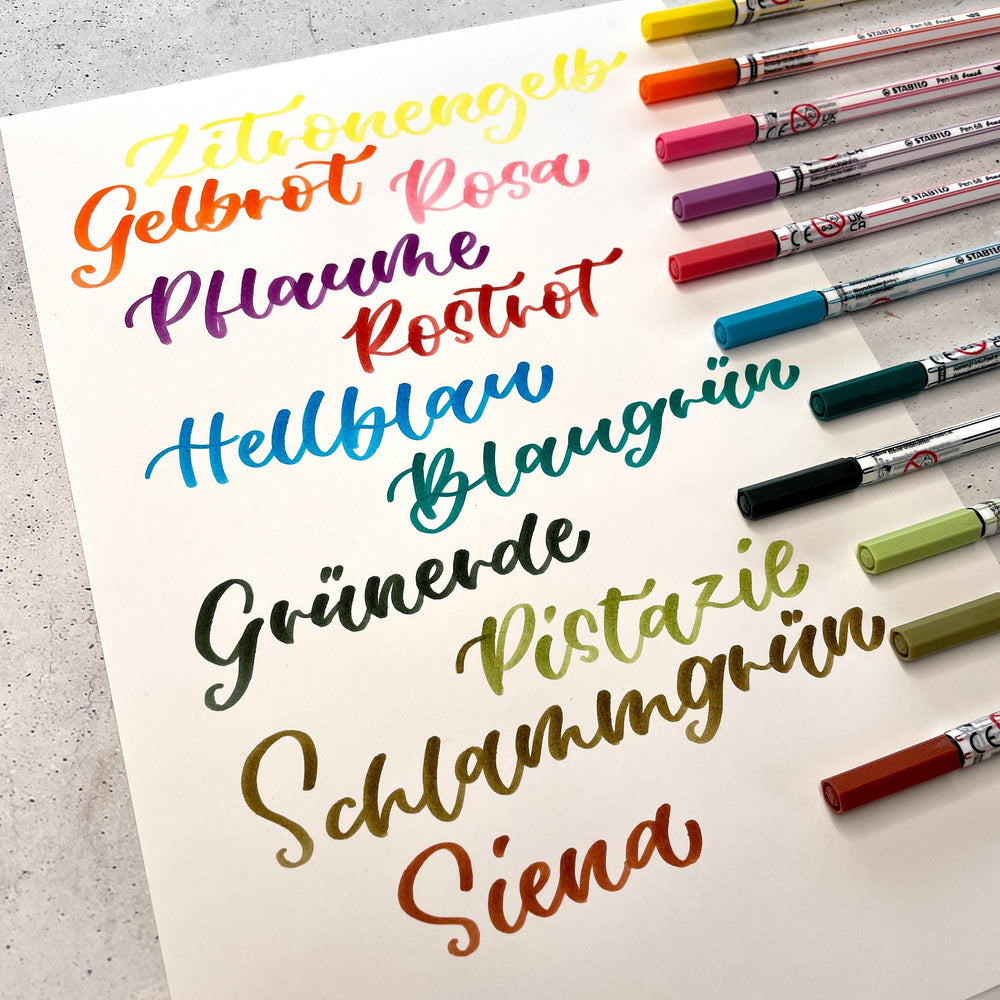 Zitronengelb
Gelbrot Rosa
Pflaume
Rostrot
Hellblau
Blaugrün
Grünerde
Pistazie
Schlammgrün
Siena
STABILO Pen 68 brush
STABILO Pen 68 brush
STABILO Pen 68 brush
STABILO Pen 68 brush
STABILO
CE 0-3 UK CA